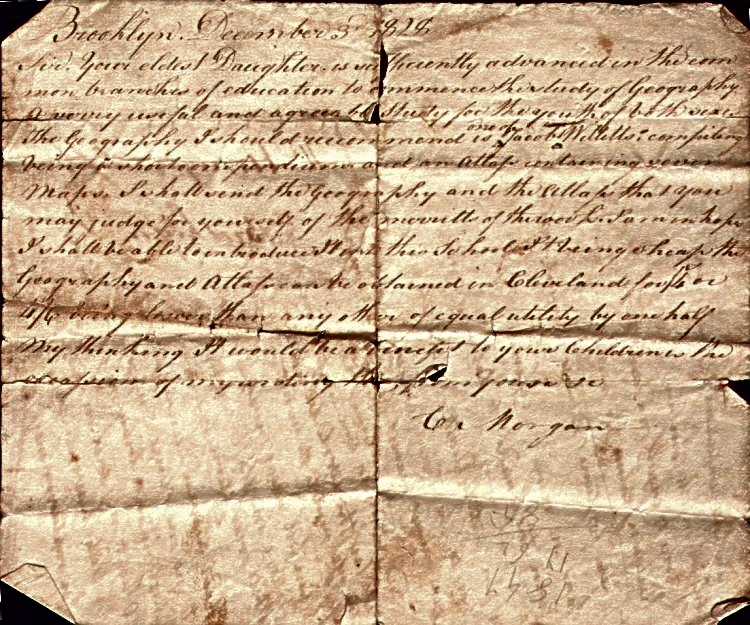 Brooklyn. December 3d 1828
Sir. Your eldest Daughter is sufficiently advanced in the com
mon branches of education to commence the study of Geography
A verry useful and agreeable study for the youth of both sexes
The Geography I should recommend is one of Jacob Willetts' compiling
being a short compendium and an Atlass containing seven
Maps. I shall send the Geography and the Atlass that you
may judge for yourself of the merritt of the work. I am in hope
I shall be able to introduce It into this School It being cheap the
Geography and Atlass can be obtained in Cleveland for or
4/6 being lower than any other of equal utility by one half
My thinking It would be a benefit to your Children is the
occasion of my writing I am yours &c
C. Morgan